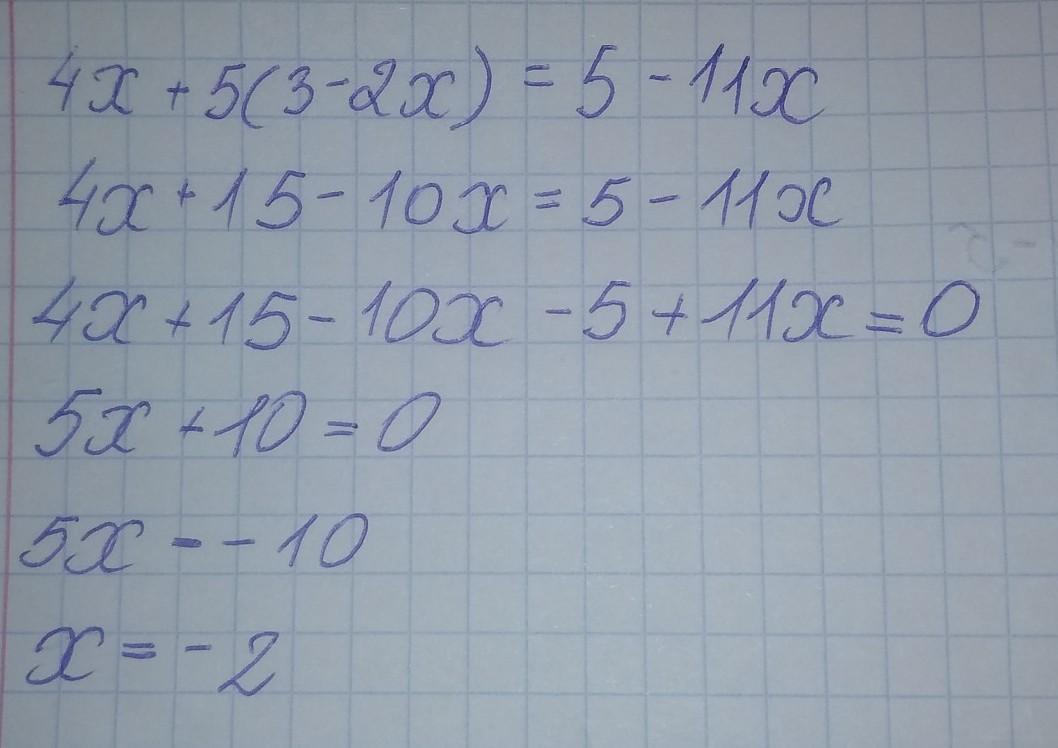 4x + 5(3-2x) = 5 - 11x
4x + 15 - 10x = 5 - 11x
4x + 15 - 10x - 5 + 11x = 0
5x + 10 = 0
5x = -10
x = -2